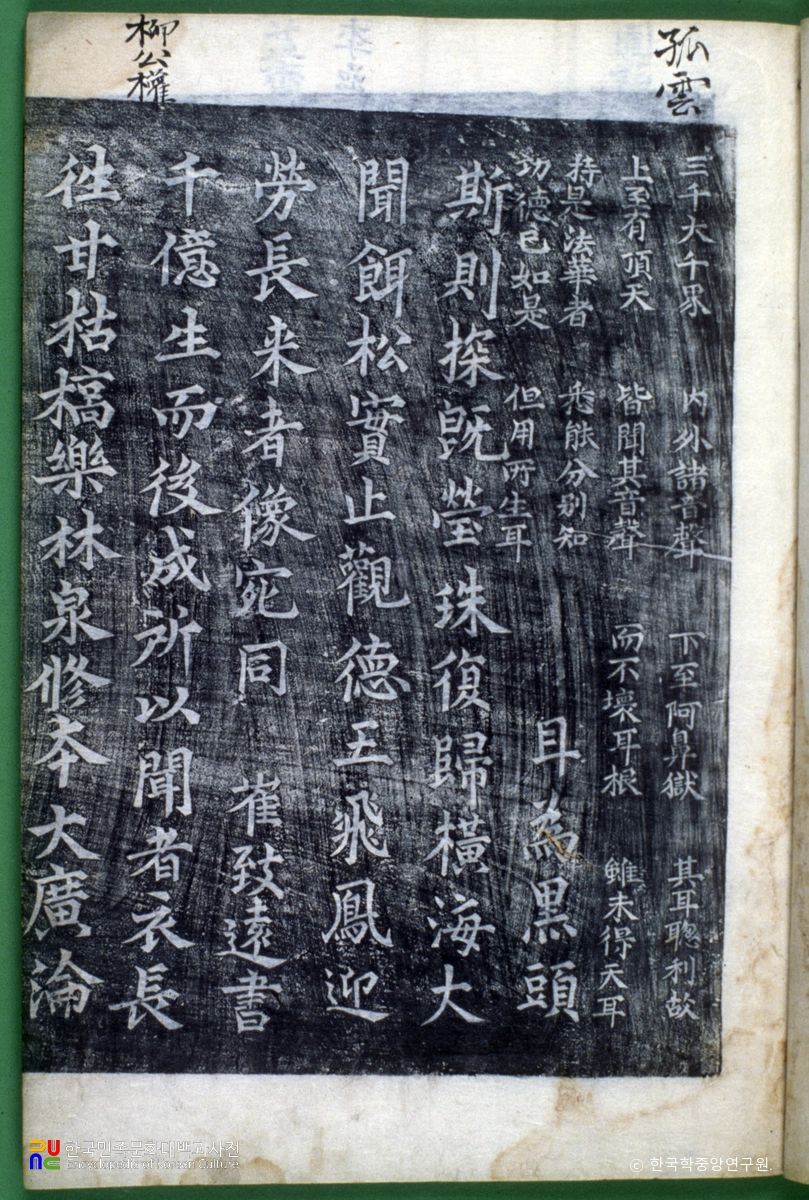 孤雲
三千大千界 內外諸音聲 下至阿鼻獄 其耳聰利故
上至有頂天 皆聞其音聲 而不壞耳根 雖未得天耳
持是法華者 悉能分別知
功德已如是 但用所生耳
耳為黑頭
斯則探旣瑩珠復歸橫海大
聞餌松實止觀德王飛鳳迎
勞長来者像宛同 崔致遠書
柳公權
千億生而後成所以聞者衣長
徃甘枯槁樂林泉修本大廣淪
한국민족문화대백과사전
Encyclopedia of Korean Culture
© 한국학중앙연구원.